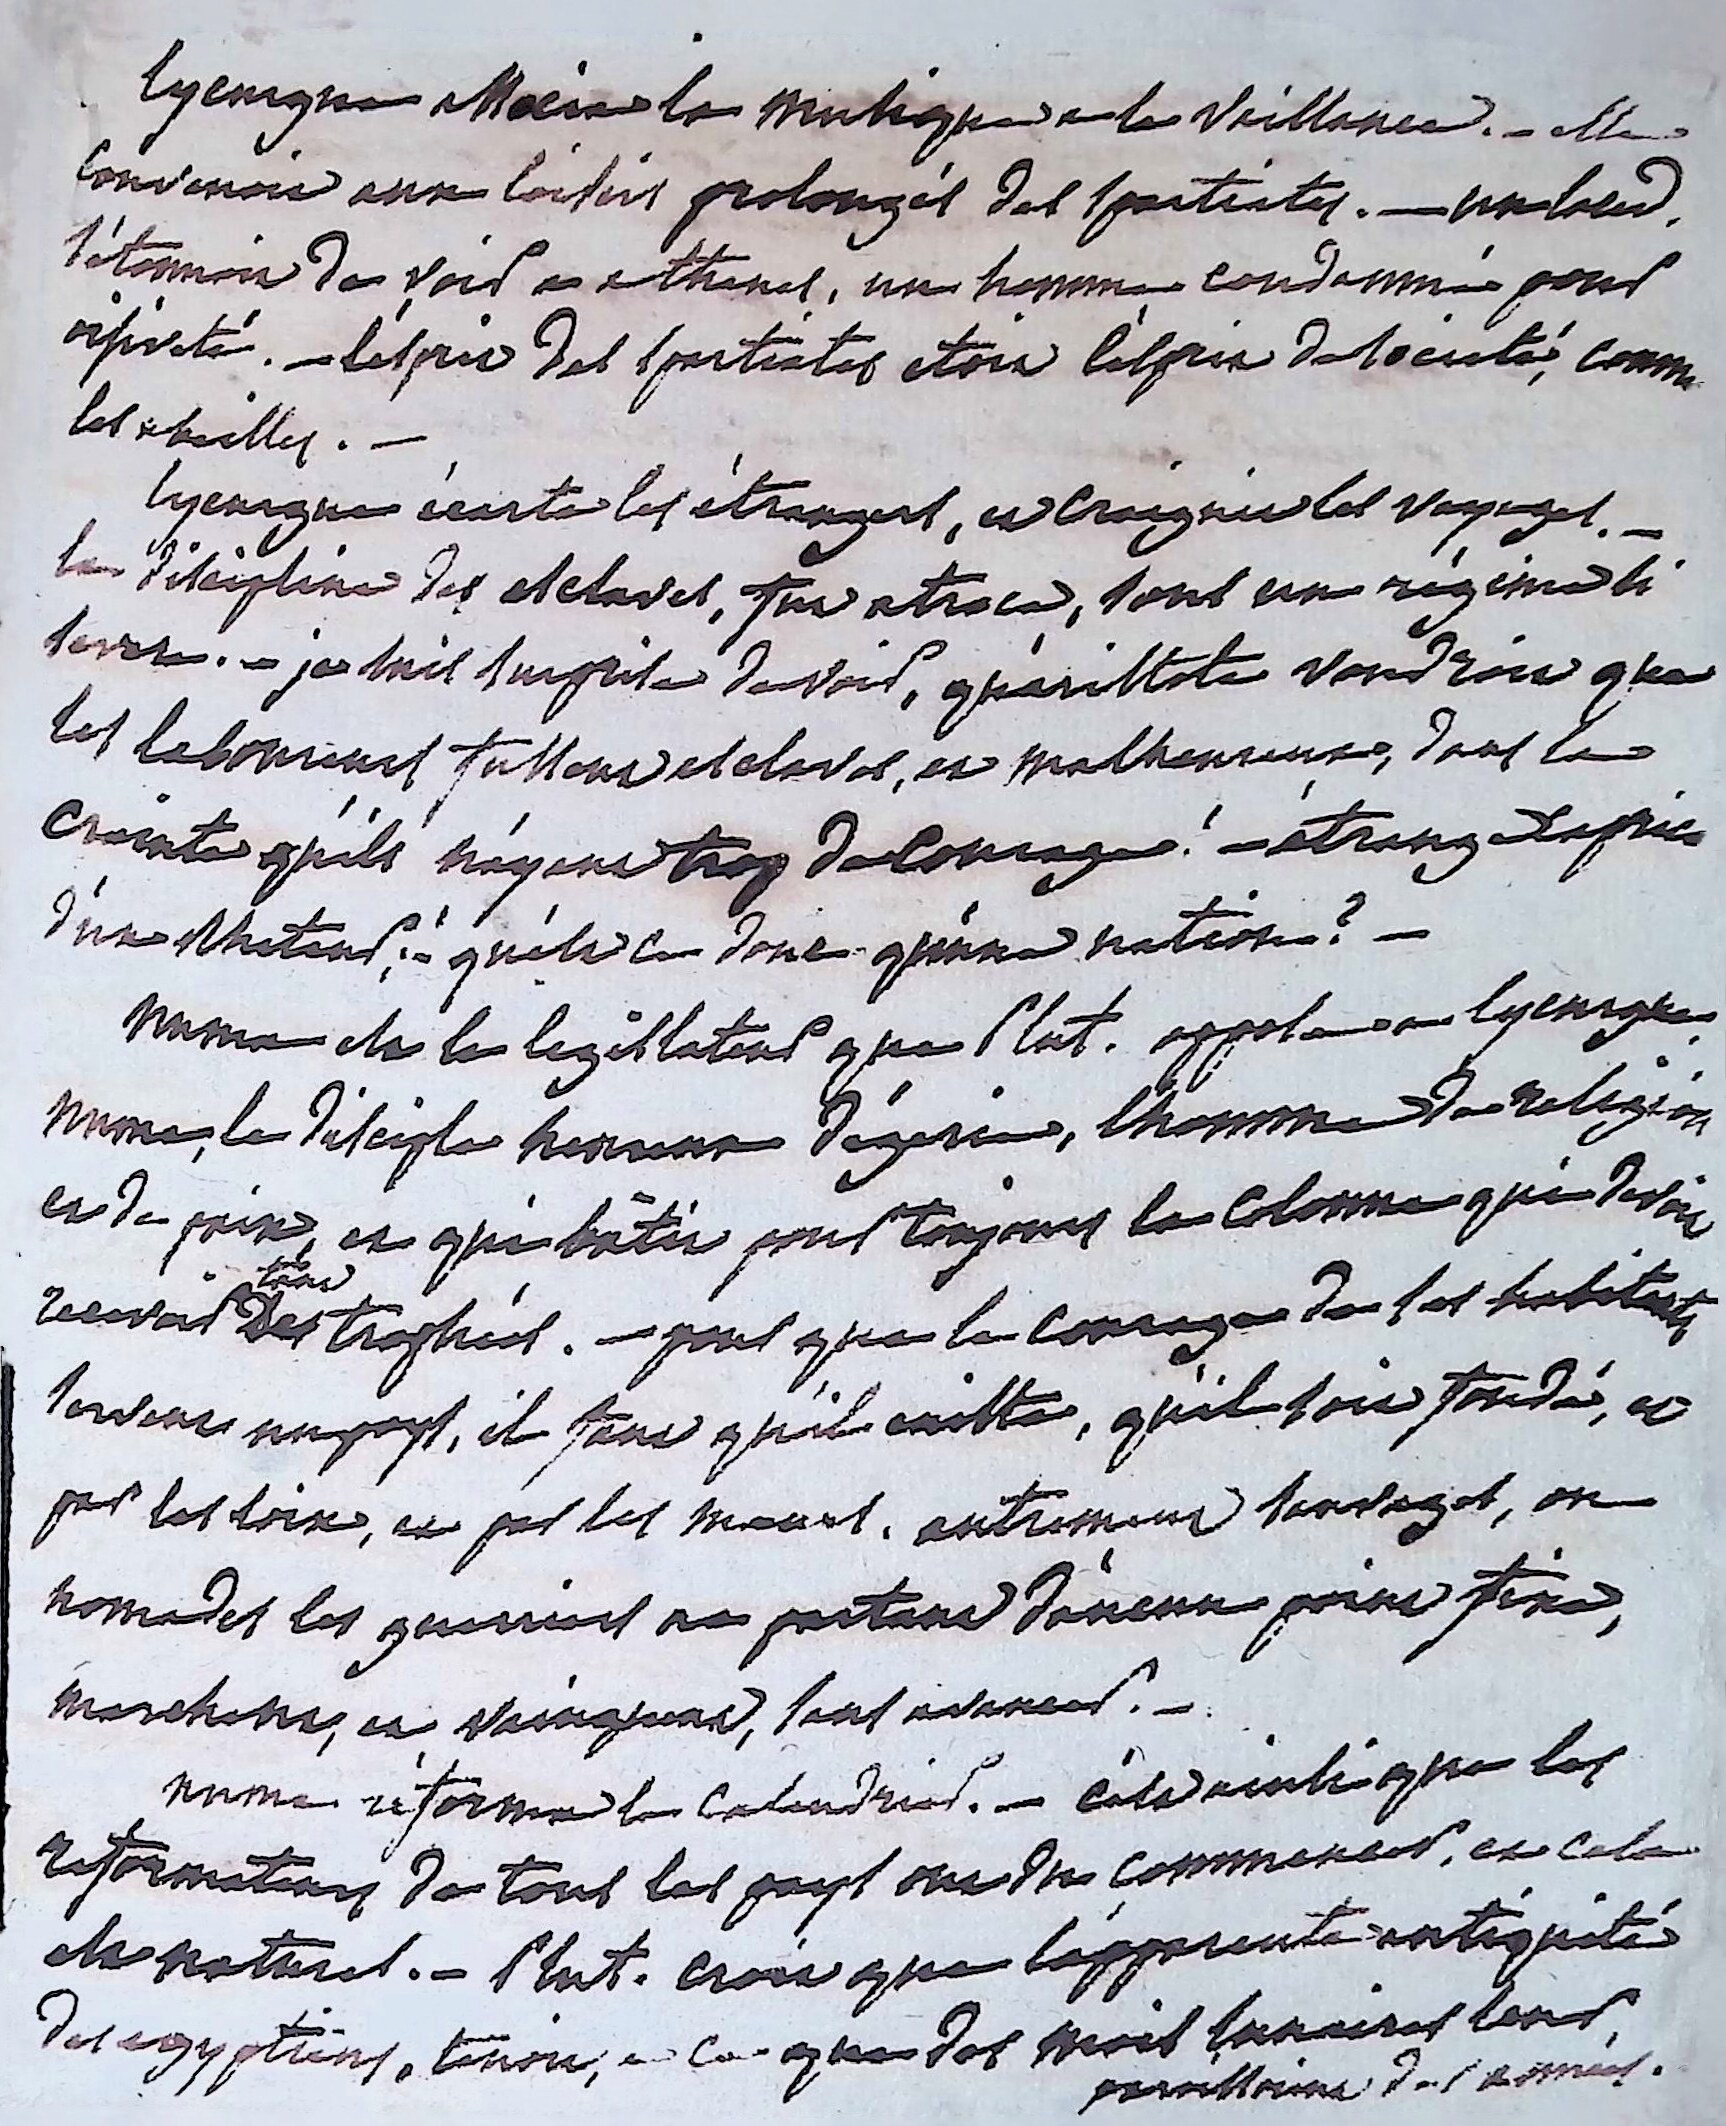 Lycurgue associa la musique a la vaillance. – elle
convenoit aux loisirs prolongés des spartiates. – un laced.
s'étonnoit de voir a athenes, un homme condamné pour
oisiveté. – l'esprit des spartiates etoit l'esprit de societé, comme
les abeilles. –
Lycurgue écarta les étrangers, et craignit les voyages. –
la discipline des esclaves, fut atroce, sous un régime si
severe. – je suis surprise de voir, qu'aristote voudroit que
les laboureurs fussent esclaves, et malheureux, dans la
crainte qu'ils n'ayent trop de courage! – étrange caprice
d'un rheteur! – qu'est ce donc qu'une nation? –
Numa est le legislateur que Plut. oppose a Lycurgue.
Numa, le disciple heureux d'égerie, l'homme de religion
et de paix, et qui bâtit pour toujours la colonne qui devoit
recevoir tant des trophées. – pour que le courage de ses habitants
serve un pays, il faut qu'il existe, qu'il soit fondé, et
par les loix, et par les moeurs. autrement sauvages, ou
nomades les guerriers ne partant d'aucun point fixe,
marchent, et vainquent, sans avancer. –
numa réforma le calendrier. – c'est ainsi que les
reformateurs de tous les pays ont du commencer, et cela
est naturel. – Plut. croit que l'apparente antiquité
des egyptiens, tenoit, a ce que des mois lunaires leur,
paroissoient des années.